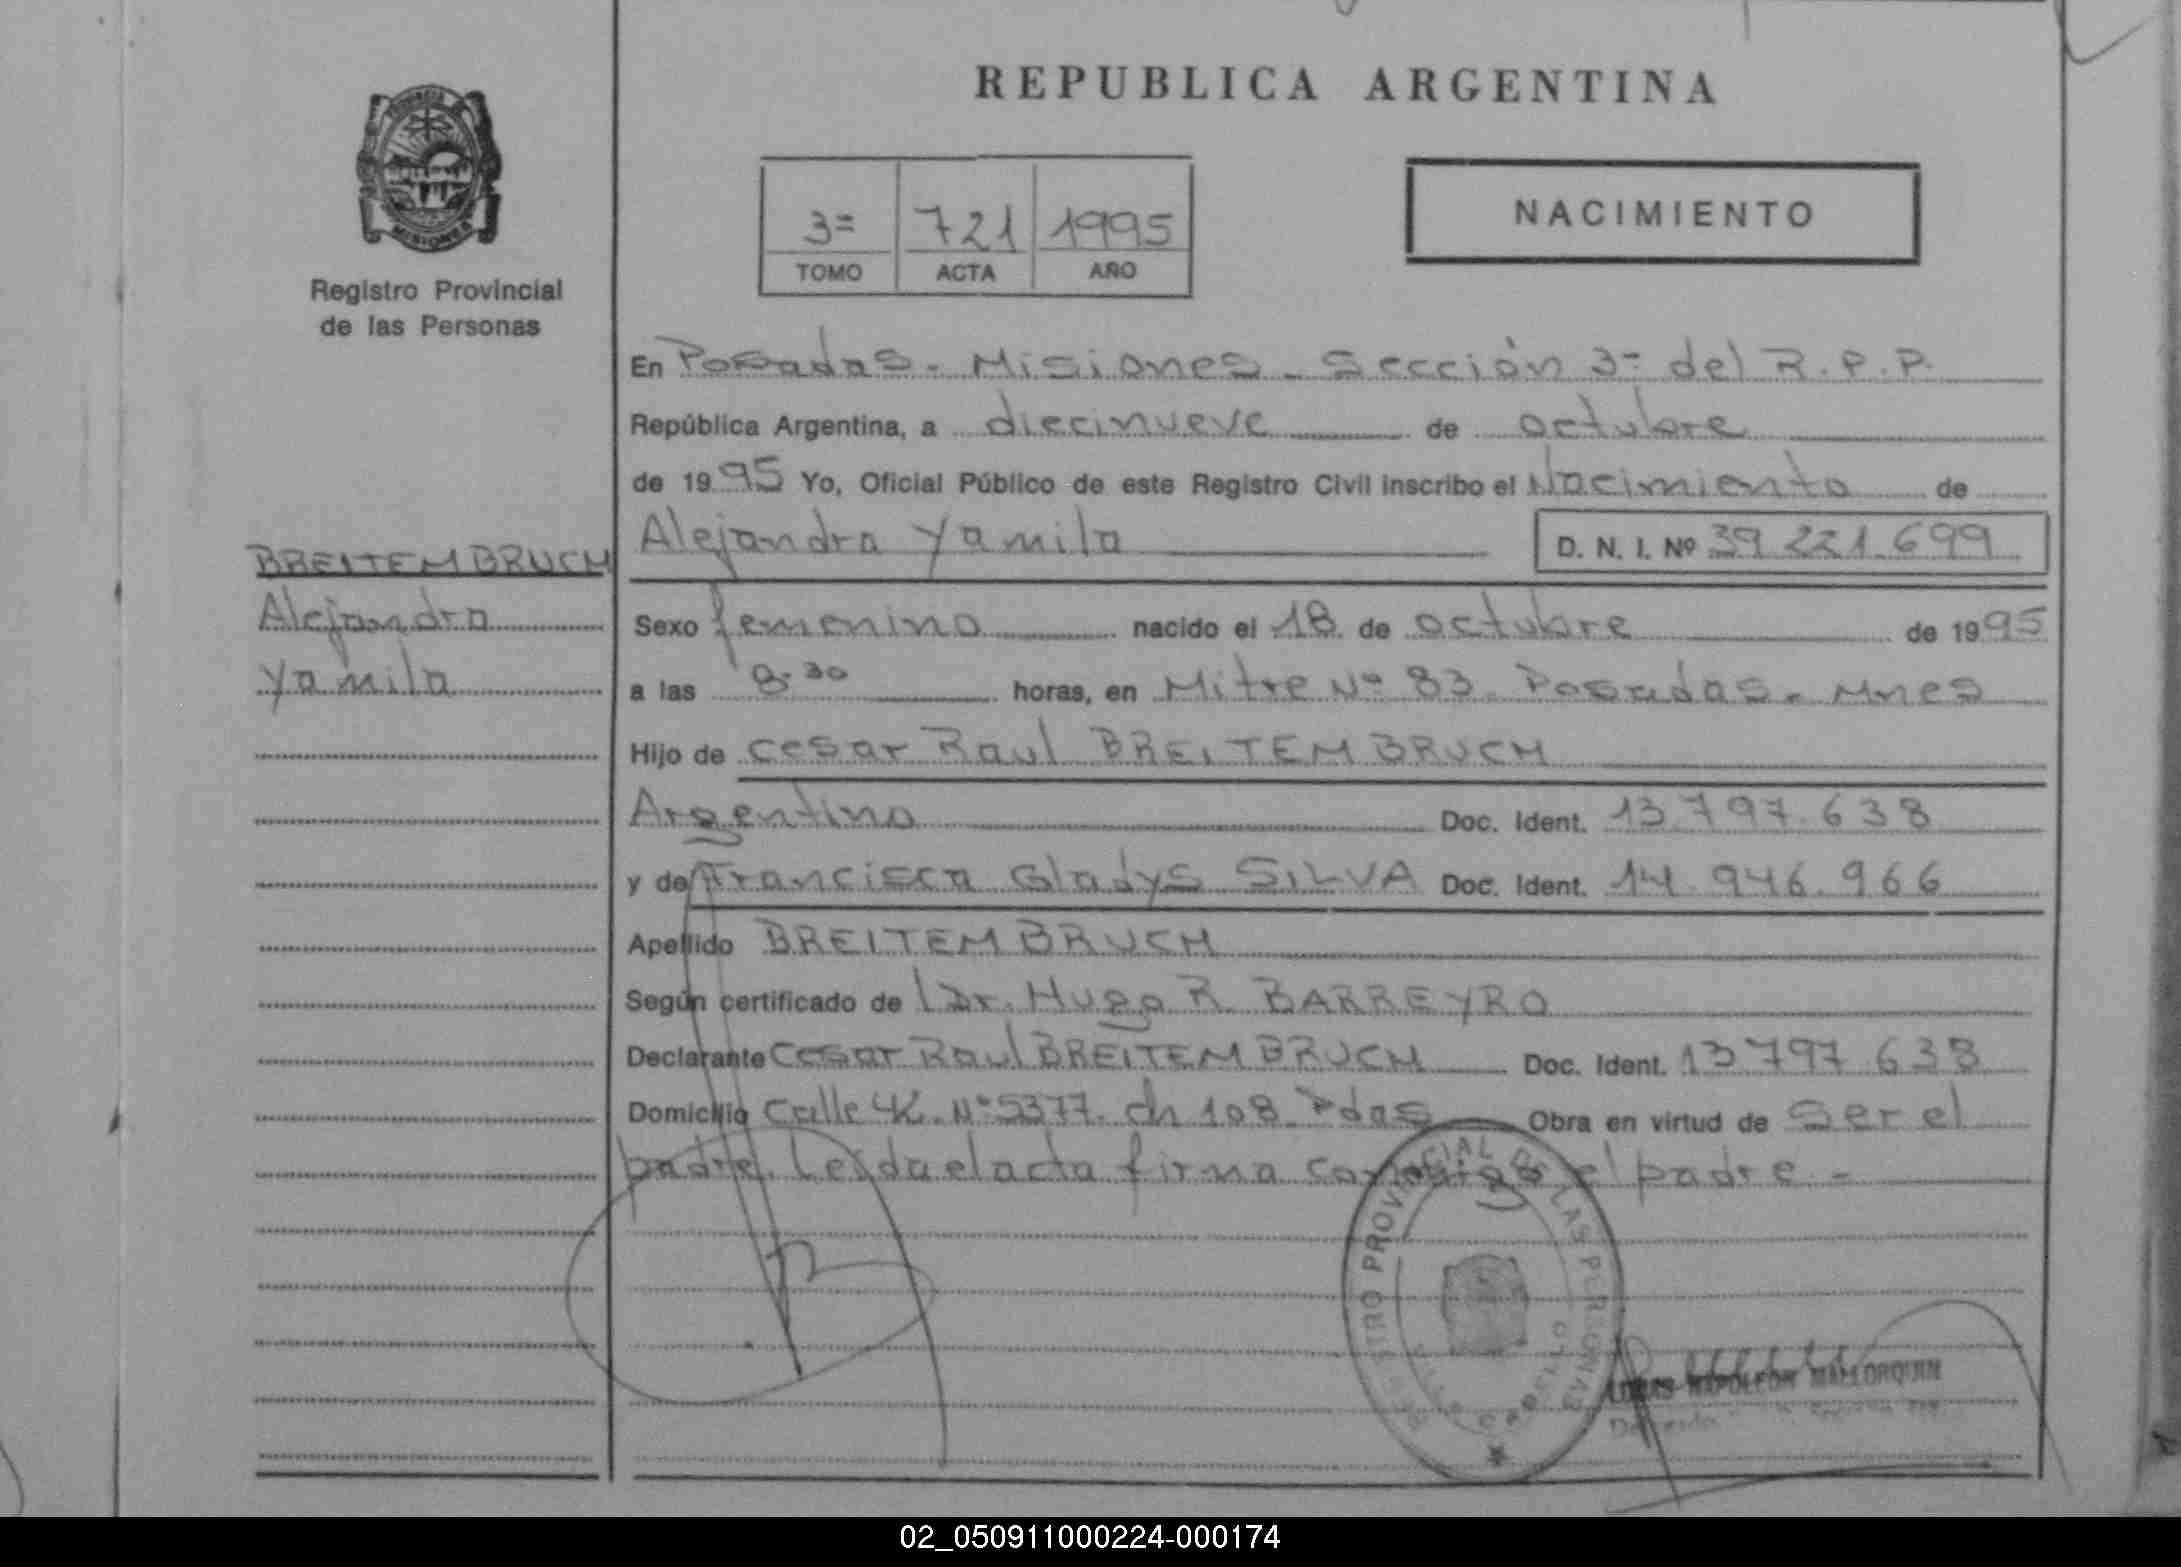 REPUBLICA ARGENTINA
PROVINCIA DE
MISIONES
Registro Provincial
de las Personas
3=
721
1995
TOMO
ACTA
AÑO
NACIMIENTO
En Posadas - Misiones - Sección 3= del R.P.P.
República Argentina, a diecinueve de octubre
de 1995 Yo, Oficial Público de este Registro Civil inscribo el Nacimiento de
Alejandra Yamila D. N. I. Nº 39 221.699
BREITEMBRUCH
Alejandra
Yamila
Sexo femenino nacido el 18 de octubre de 1995
a las 8.30 horas, en Mitre Nº 83 Posadas - Mnes
Hijo de Cesar Raul BREITEMBRUCH
Argentino Doc. Ident. 13.797.638
y de Francisca Gladys SILVA Doc. Ident. 14.946.966
Apellido BREITEMBRUCH
Según certificado de Dr. Hugo R. BARREYRO
Declarante Cesar Raul BREITEMBRUCH Doc. Ident. 13.797.638
Domicilio Calle Nº 5377. ch 108 Pdas Obra en virtud de ser el
padre. Leida el acta firma conmigo el padre -
REGISTRO PROVINCIAL DE LAS PERSONAS
NAPOLEON MALLORQUIN
02_050911000224-000174